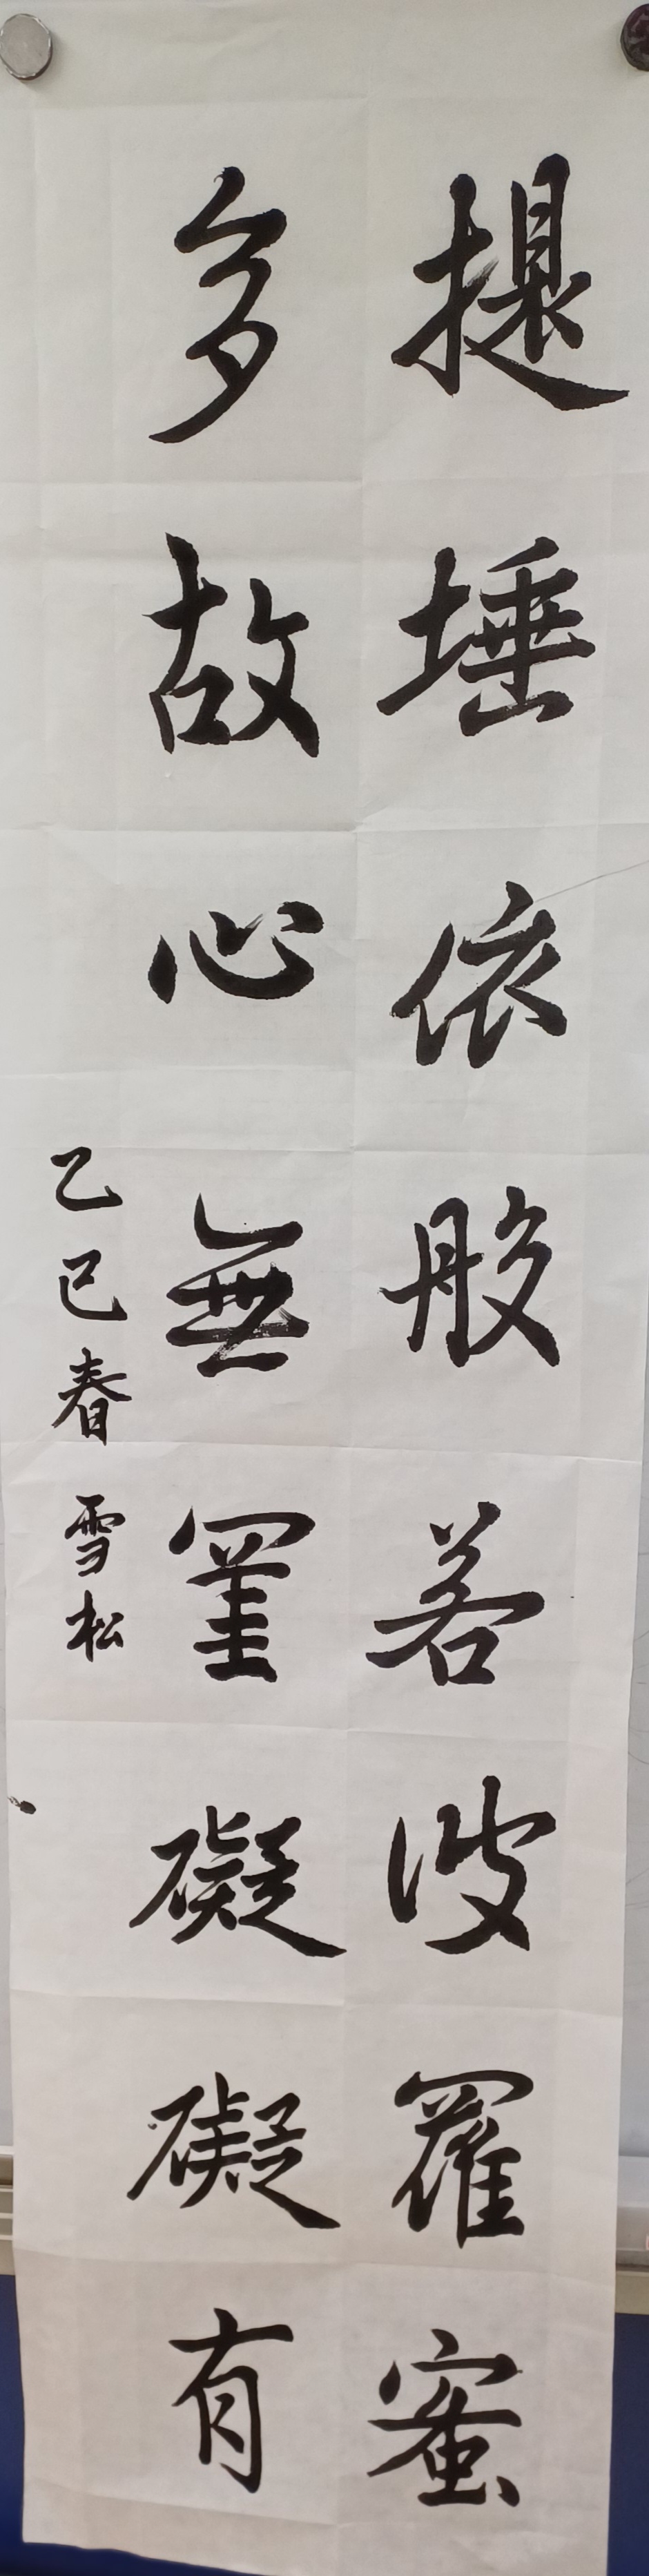 提埵依般若波羅蜜
多故心無罣礙礙有
乙巳春雪松